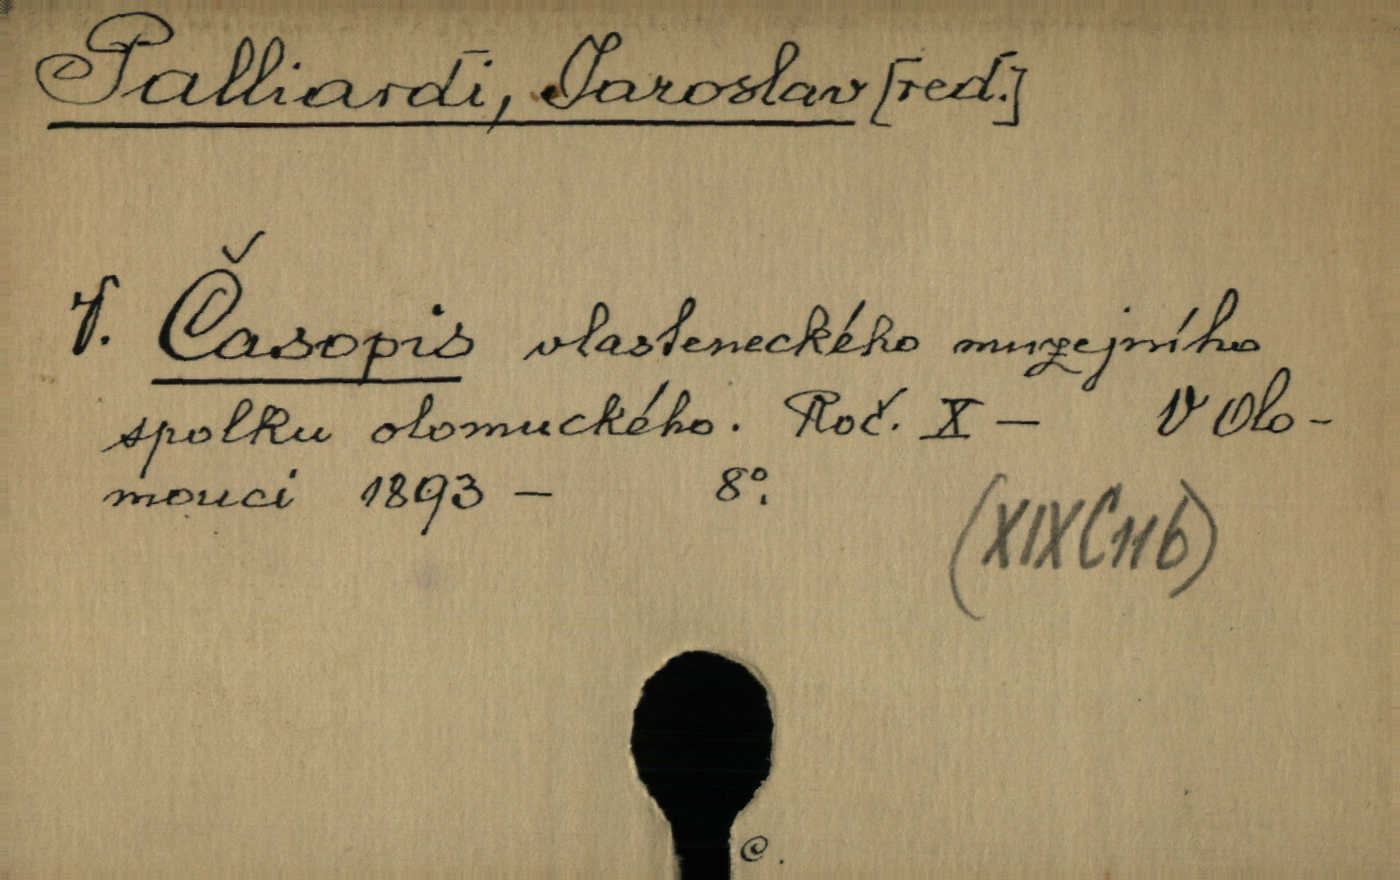 Palliardi, Jaroslav [red.]
V. Časopis vlasteneckého muzejního
spolku olomuckého. Roč. X — V Olo-
mouci 1893 — 8°.
(XIX C 11 b)
C.